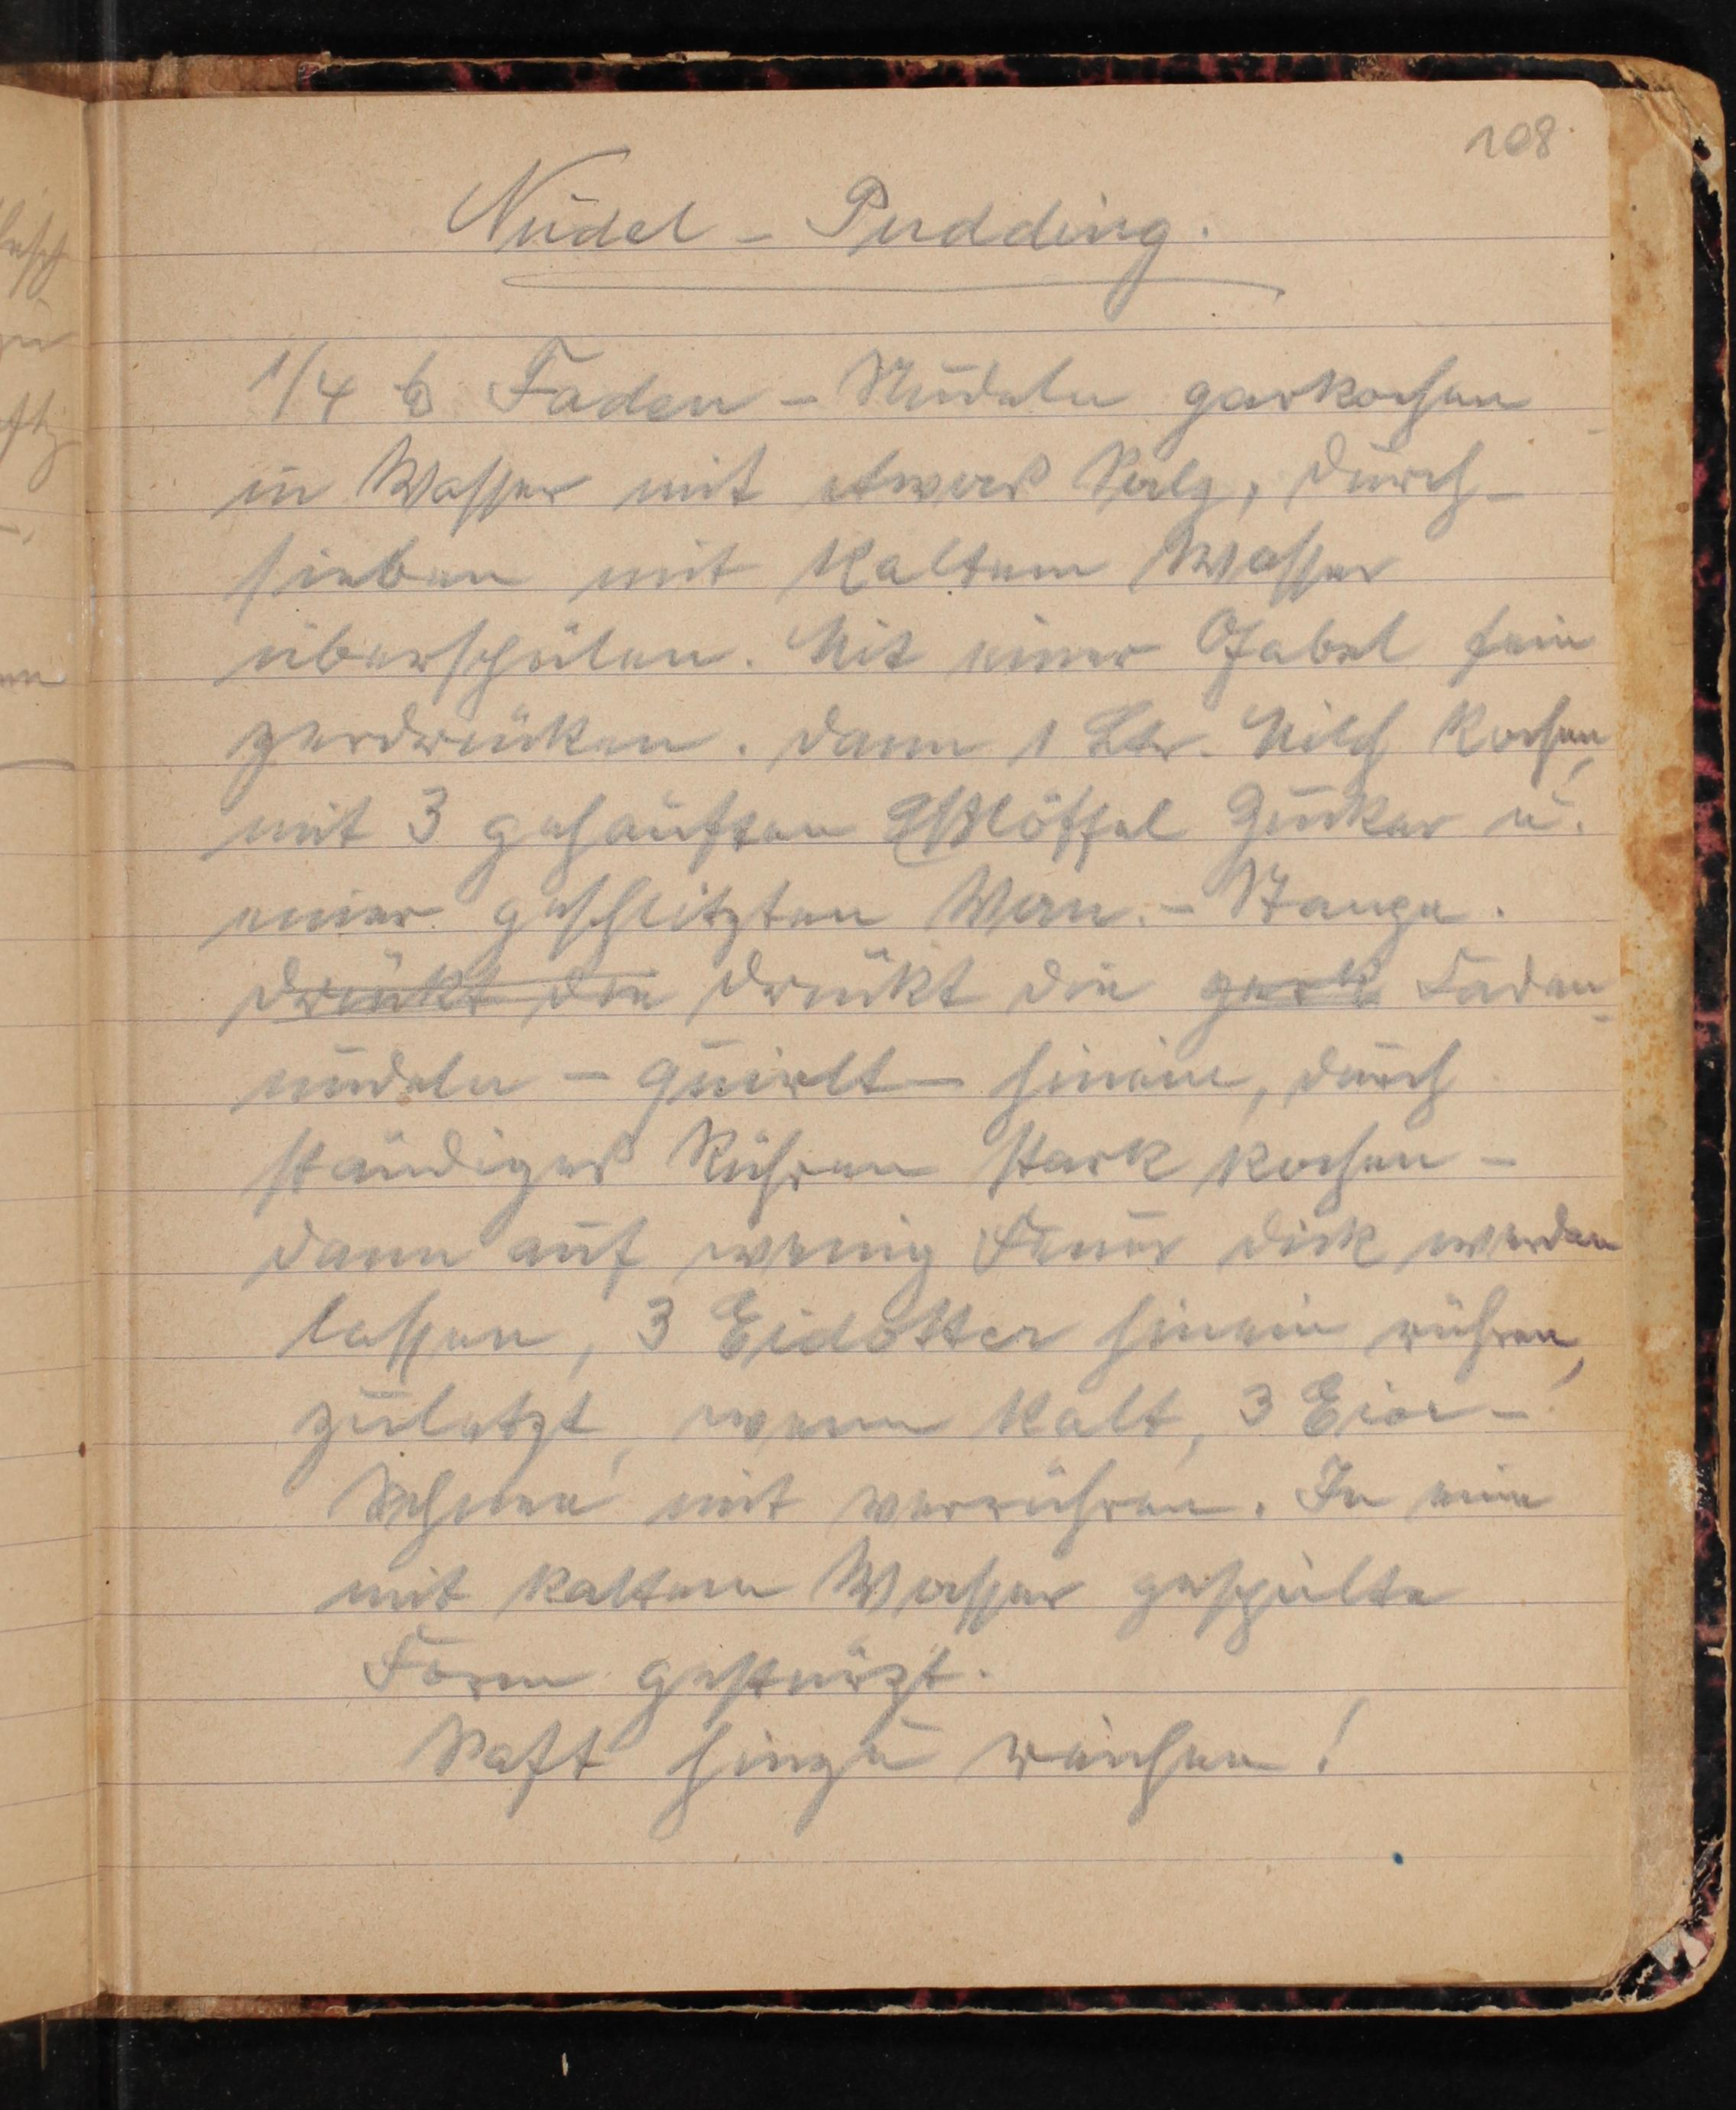 108
Nudel - Pudding.
1/4 ℔ Faden - Nudeln garkochen
in Wasser mit etwas Salz, durch-
sieben mit kaltem Wasser
überspülen. Mit einer Gabel fein
zerdrücken. Dann 1 Ltr. Milch kochen,
mit 3 gehäuften Eßlöffel Zucker u.
einer geschlitzten Van. - Stange.
drückt die drückt die Faden
nudeln - quirlt - hinein, durch
ständiges Rühren stark kochen -
dann auf wenig Feuer dick werden
lassen, 3 Eidotter hinein rühren,
zuletzt, wenn kalt, 3 Eier-
Schnee mit verrühren. In eine
mit kaltem Wasser gespülte
Form gestürzt.
Saft hinzu reichen!